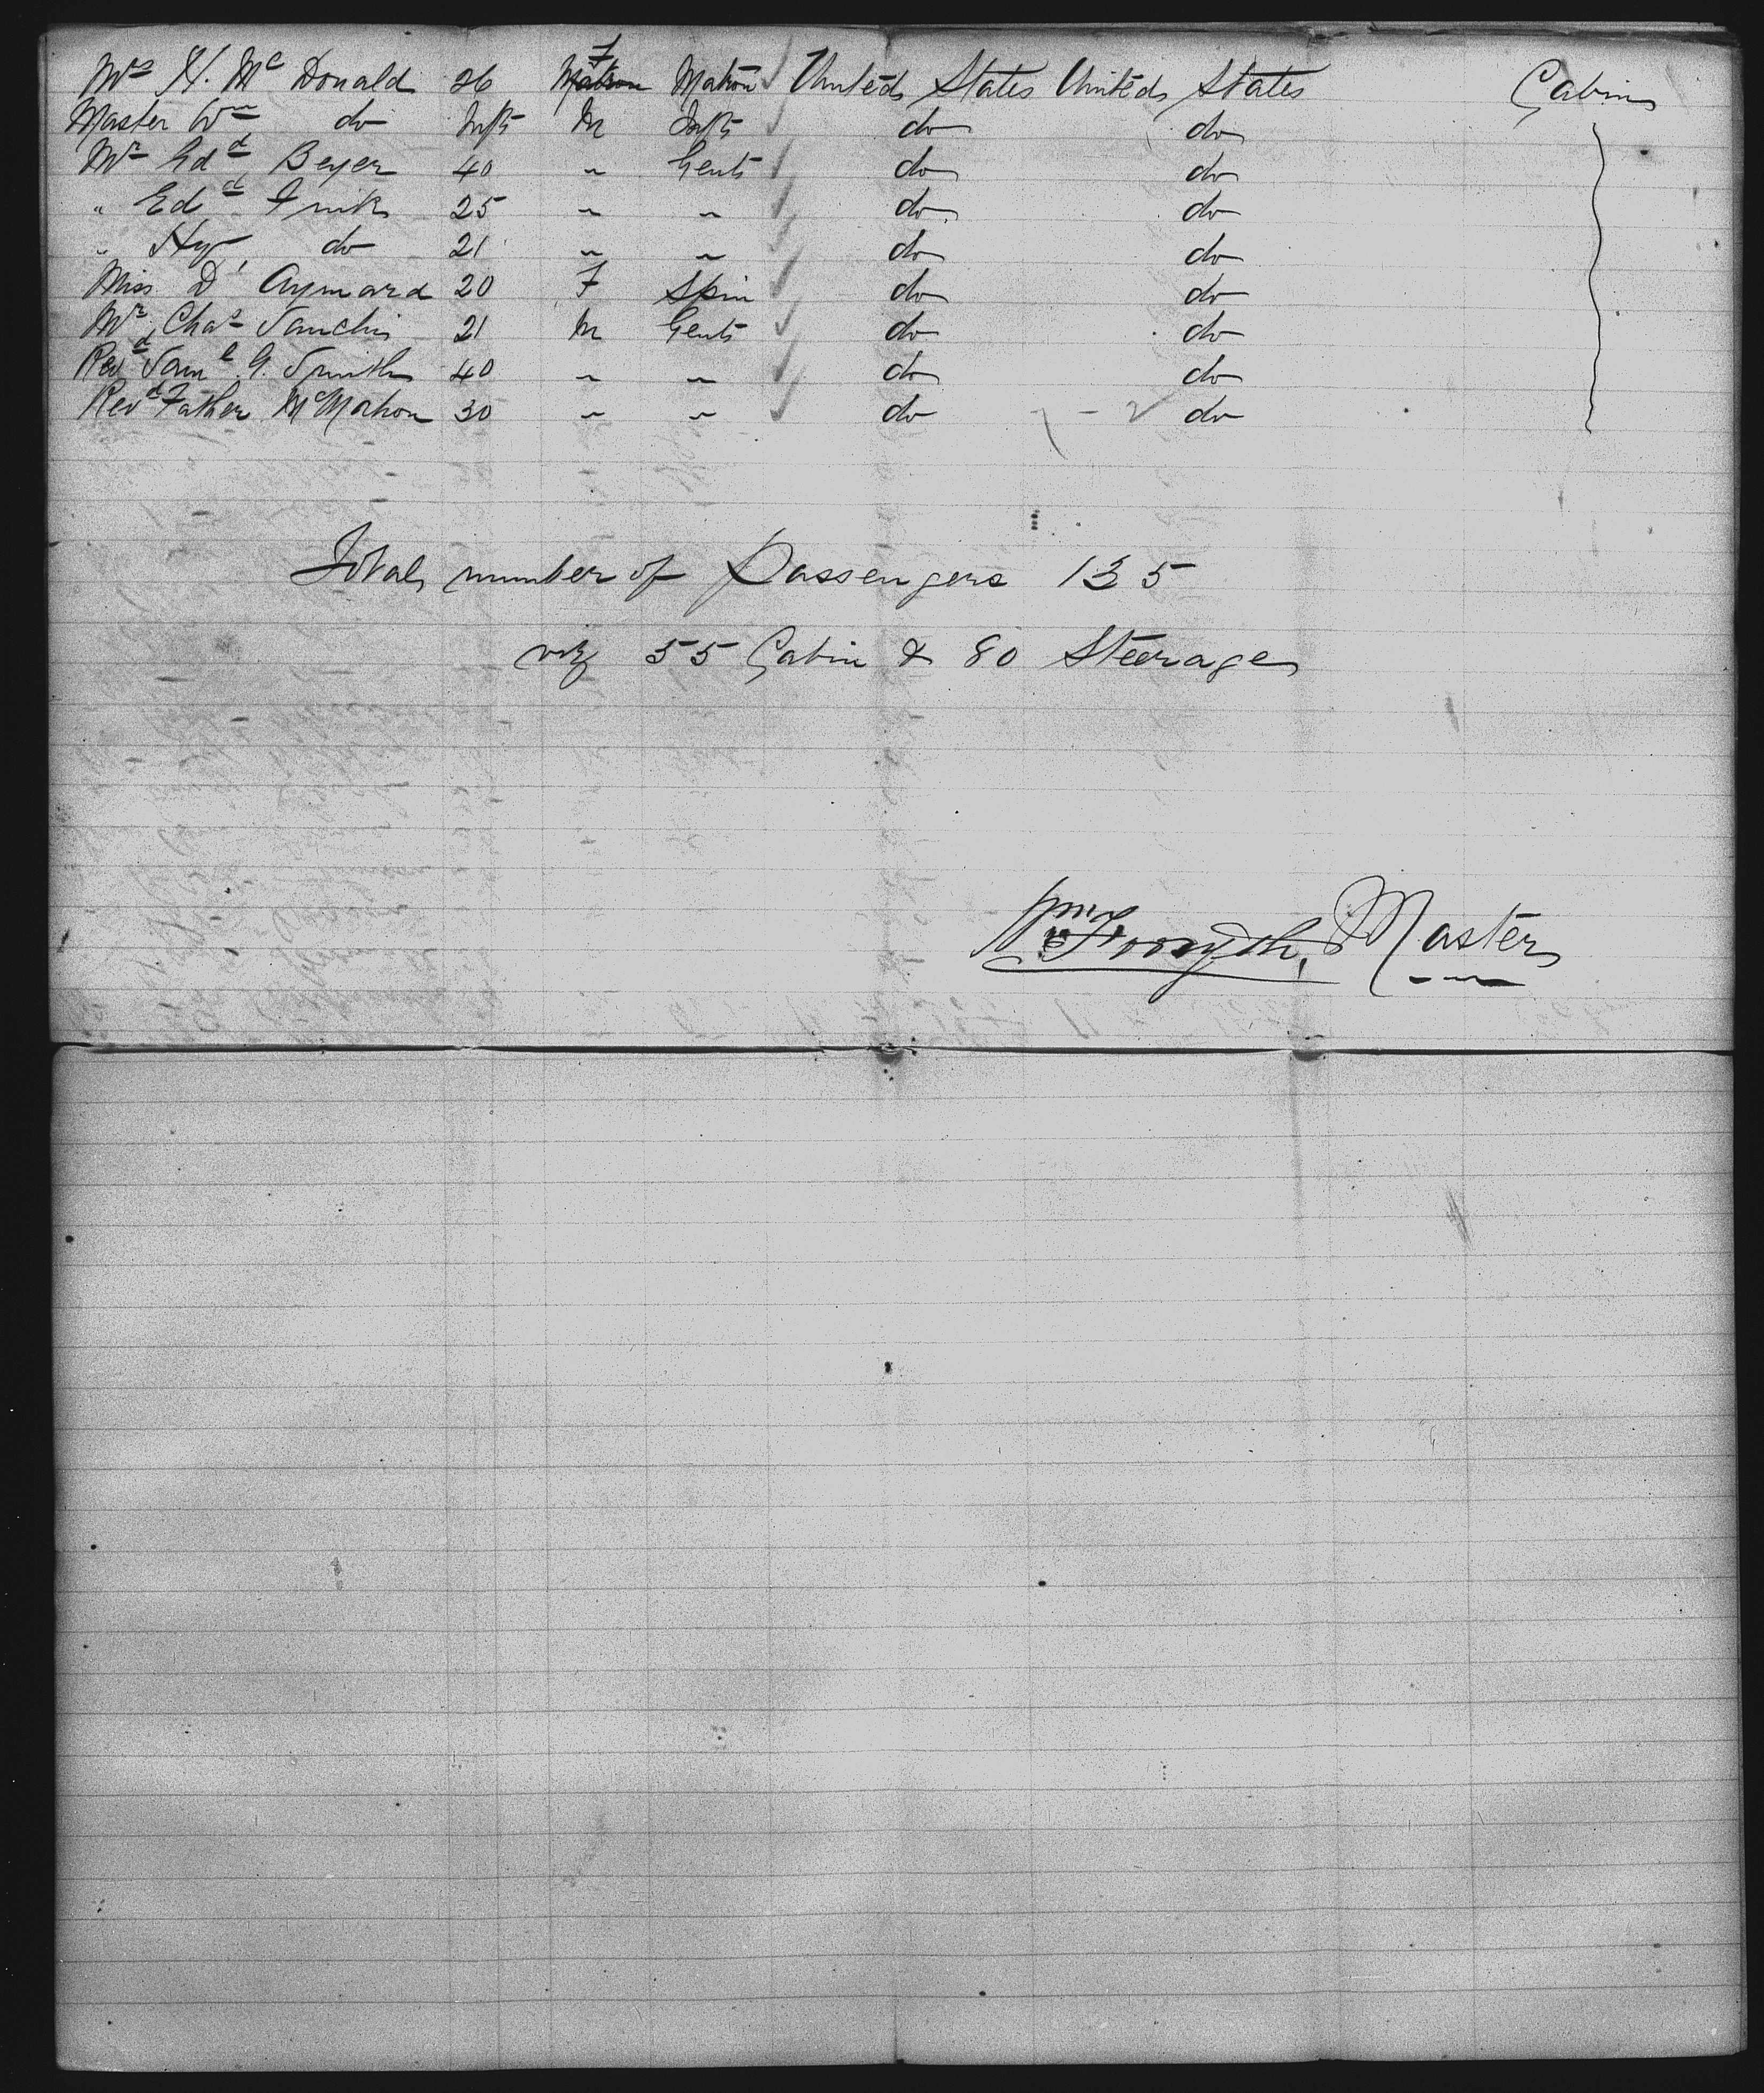 Mrs H. Mc Donald 26 F Matron United States United States Cabin
Master Wm do Inft M Inft do do
Mr Edd Beyer 40 " Gent do do
" Edd 25 " " do do
" Hy do 21 " " do do
Miss D' Aymard 20 F Spin do do
Mr Chas 21 M Gent do do
Revd Saml G. Smith 40 " " do do
Revd Father McMahon 30 " " do do
Total number of Passengers 135
viz 55 Cabin & 80 Steerage
Wm Forsyth, Master